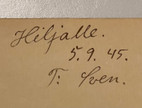 Hiljalle.
5.9.45.
T: Sven.